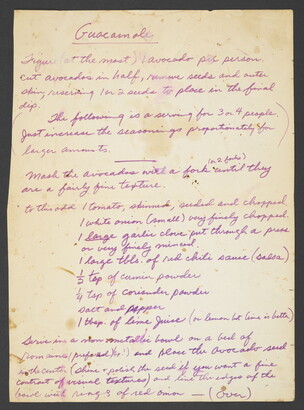 Guacamole
Figure (at the most) 1 avocado per person.
cut avocados in half, remove seeds and outer
skin, reserving 1 or 2 seeds to place in the final
dip.
The following is a serving for 3 or 4 people
Just increase the seasonings proportionately for
larger amounts.
Mash the avocados with a fork (or 2 forks) until they
are a fairly fine texture.
to this add 1 tomato, skinned, seeded and chopped
1 white onion (small) very finely chopped
1 large garlic clove put through a press
or very finely minced
1 large tbls. of red chile sauce (salsa)
1/2 tsp of cumin powder
1/4 tsp of coriander powder
salt and pepper
1 tbsp. of lime juice (or lemon but lime is better)
Serve in a non metallic bowl on a bed of
and place the avocado seed
in the center (shine & polish the seed if you want a fine
contrast of visual textures) and line the edges of the
bowl with rings of red onion — (Over)